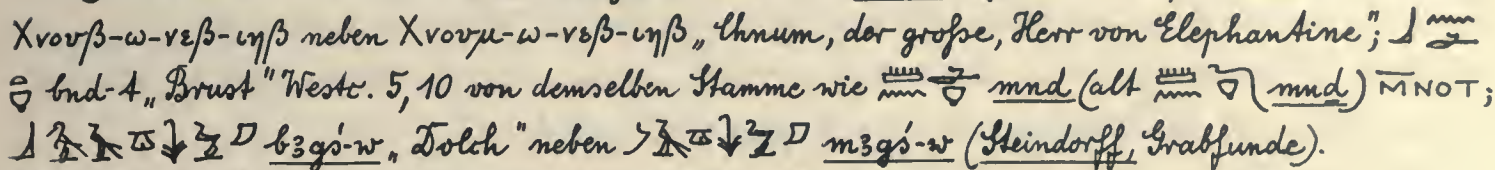 Χνουβ-ω-νεβ-ιηβ neben Χνουμ-ω-νεβ-ιηβ „Chnum, der große, Herr von Elephantine";
bnd-t „Brust" Westc. 5, 10 von demselben Stamme wie mnd (alt mnd) ⲘⲚⲞⲦ;
bꜣgś-w „Dolch" neben mꜣgś-w (Steindorff, Grabfunde).